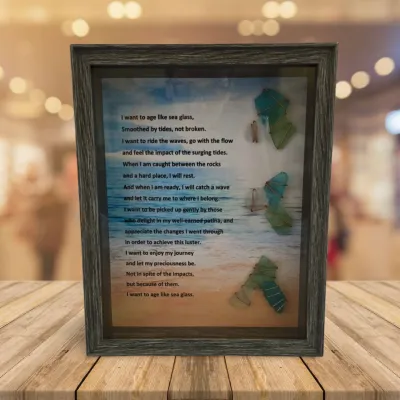 I want to age like sea glass,
Smoothed by tides, not broken.
I want to ride the waves, go with the flow
and feel the impact of the surging tides.
When I am caught between the rocks
and a hard place, I will rest.
And when I am ready, I will catch a wave
and let it carry me to where I belong.
I want to be picked up gently by those
who delight in my well-earned patina, and
appreciate the changes I went through
in order to achieve this luster.
I want to enjoy my journey
and let my preciousness be.
Not in spite of the impacts,
but because of them.
I want to age like sea glass.